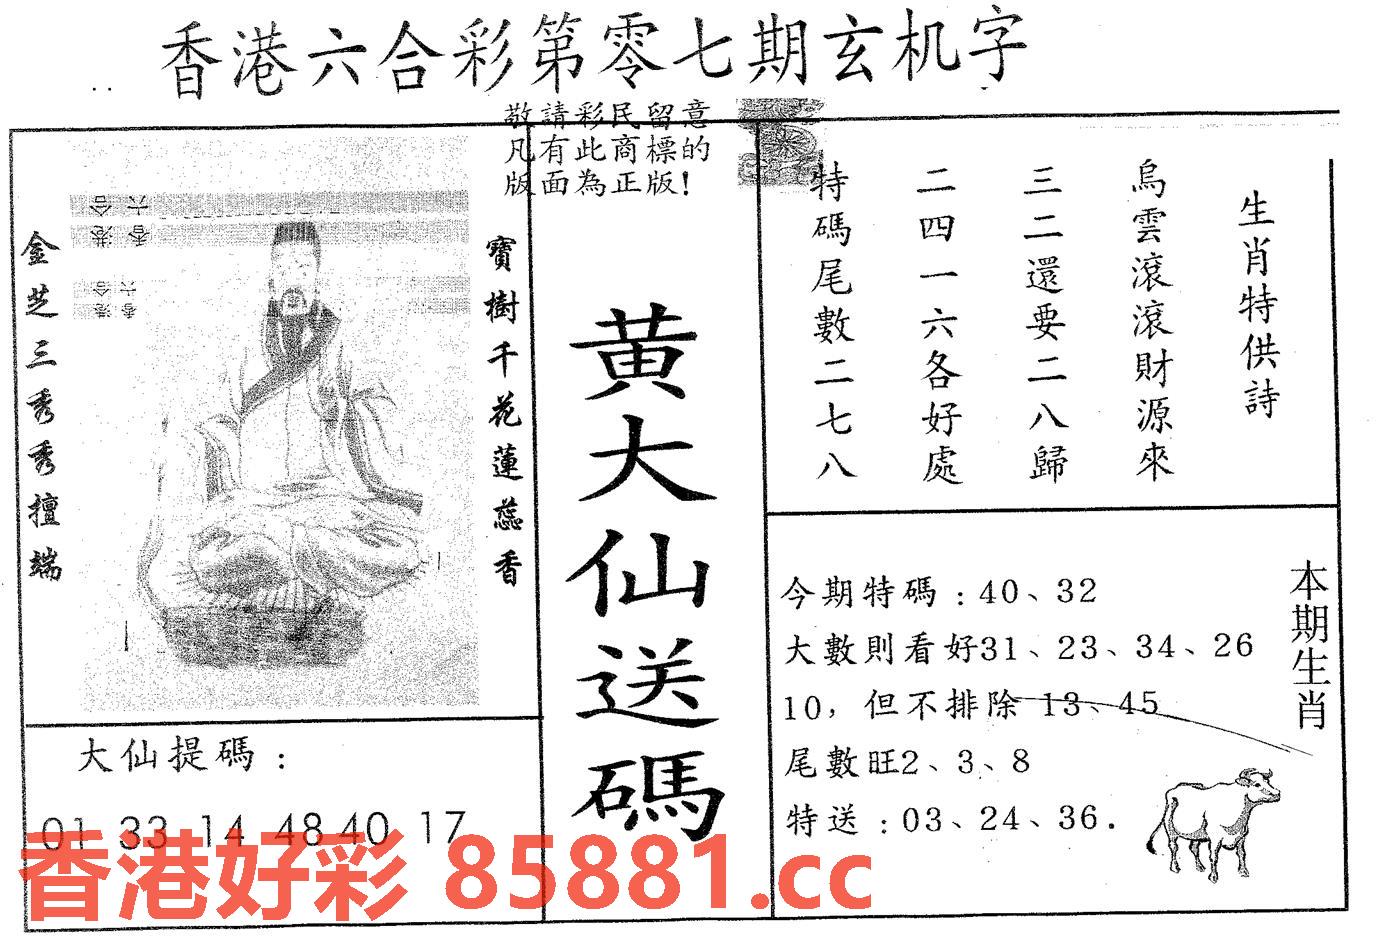 香港六合彩第零七期玄机字
敬請彩民留意
凡有此商標的
版面為正版!
金芝三秀秀擅端
寶樹千花蓮蕊香
六合
香港
六合
香港
黄大仙送碼
生肖特供詩
烏雲滾滾財源來
三二還要二八歸
二四一六各好處
特碼尾數二七八
本期生肖
今期特碼:40、32
大數則看好31、23、34、26
10，但不排除 13、45
尾數旺2、3、8
特送:03、24、36.
大仙提碼:
01 33 14 48 40 17
香港好彩 85881.cc